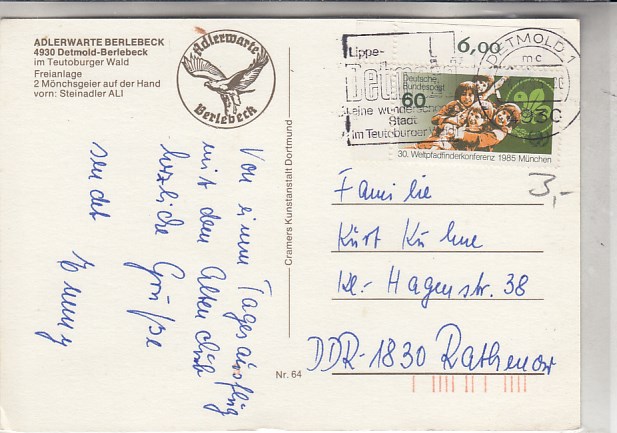 ADLERWARTE BERLEBECK
4930 Detmold-Berlebeck
im Teutoburger Wald
Freianlage
2 Mönchsgeier auf der Hand
vorn: Steinadler ALI
Adlerwarte
Berlebeck
Von einem Tagesausflug
mit dem Altenclub
herzliche Grüße
sendet
Cramers Kunstanstalt Dortmund
Nr. 64
6,00
Lippe-
Detmold
eine wunderschöne
Stadt
im Teutoburger W
DETMOLD 1
mc
4930
Deutsche
Bundespost
60
30. Weltpfadfinderkonferenz 1985 München
3,-
Familie
Kurt Kühne
Kl.- Hagenstr. 38
DDR-1830 Rathenow